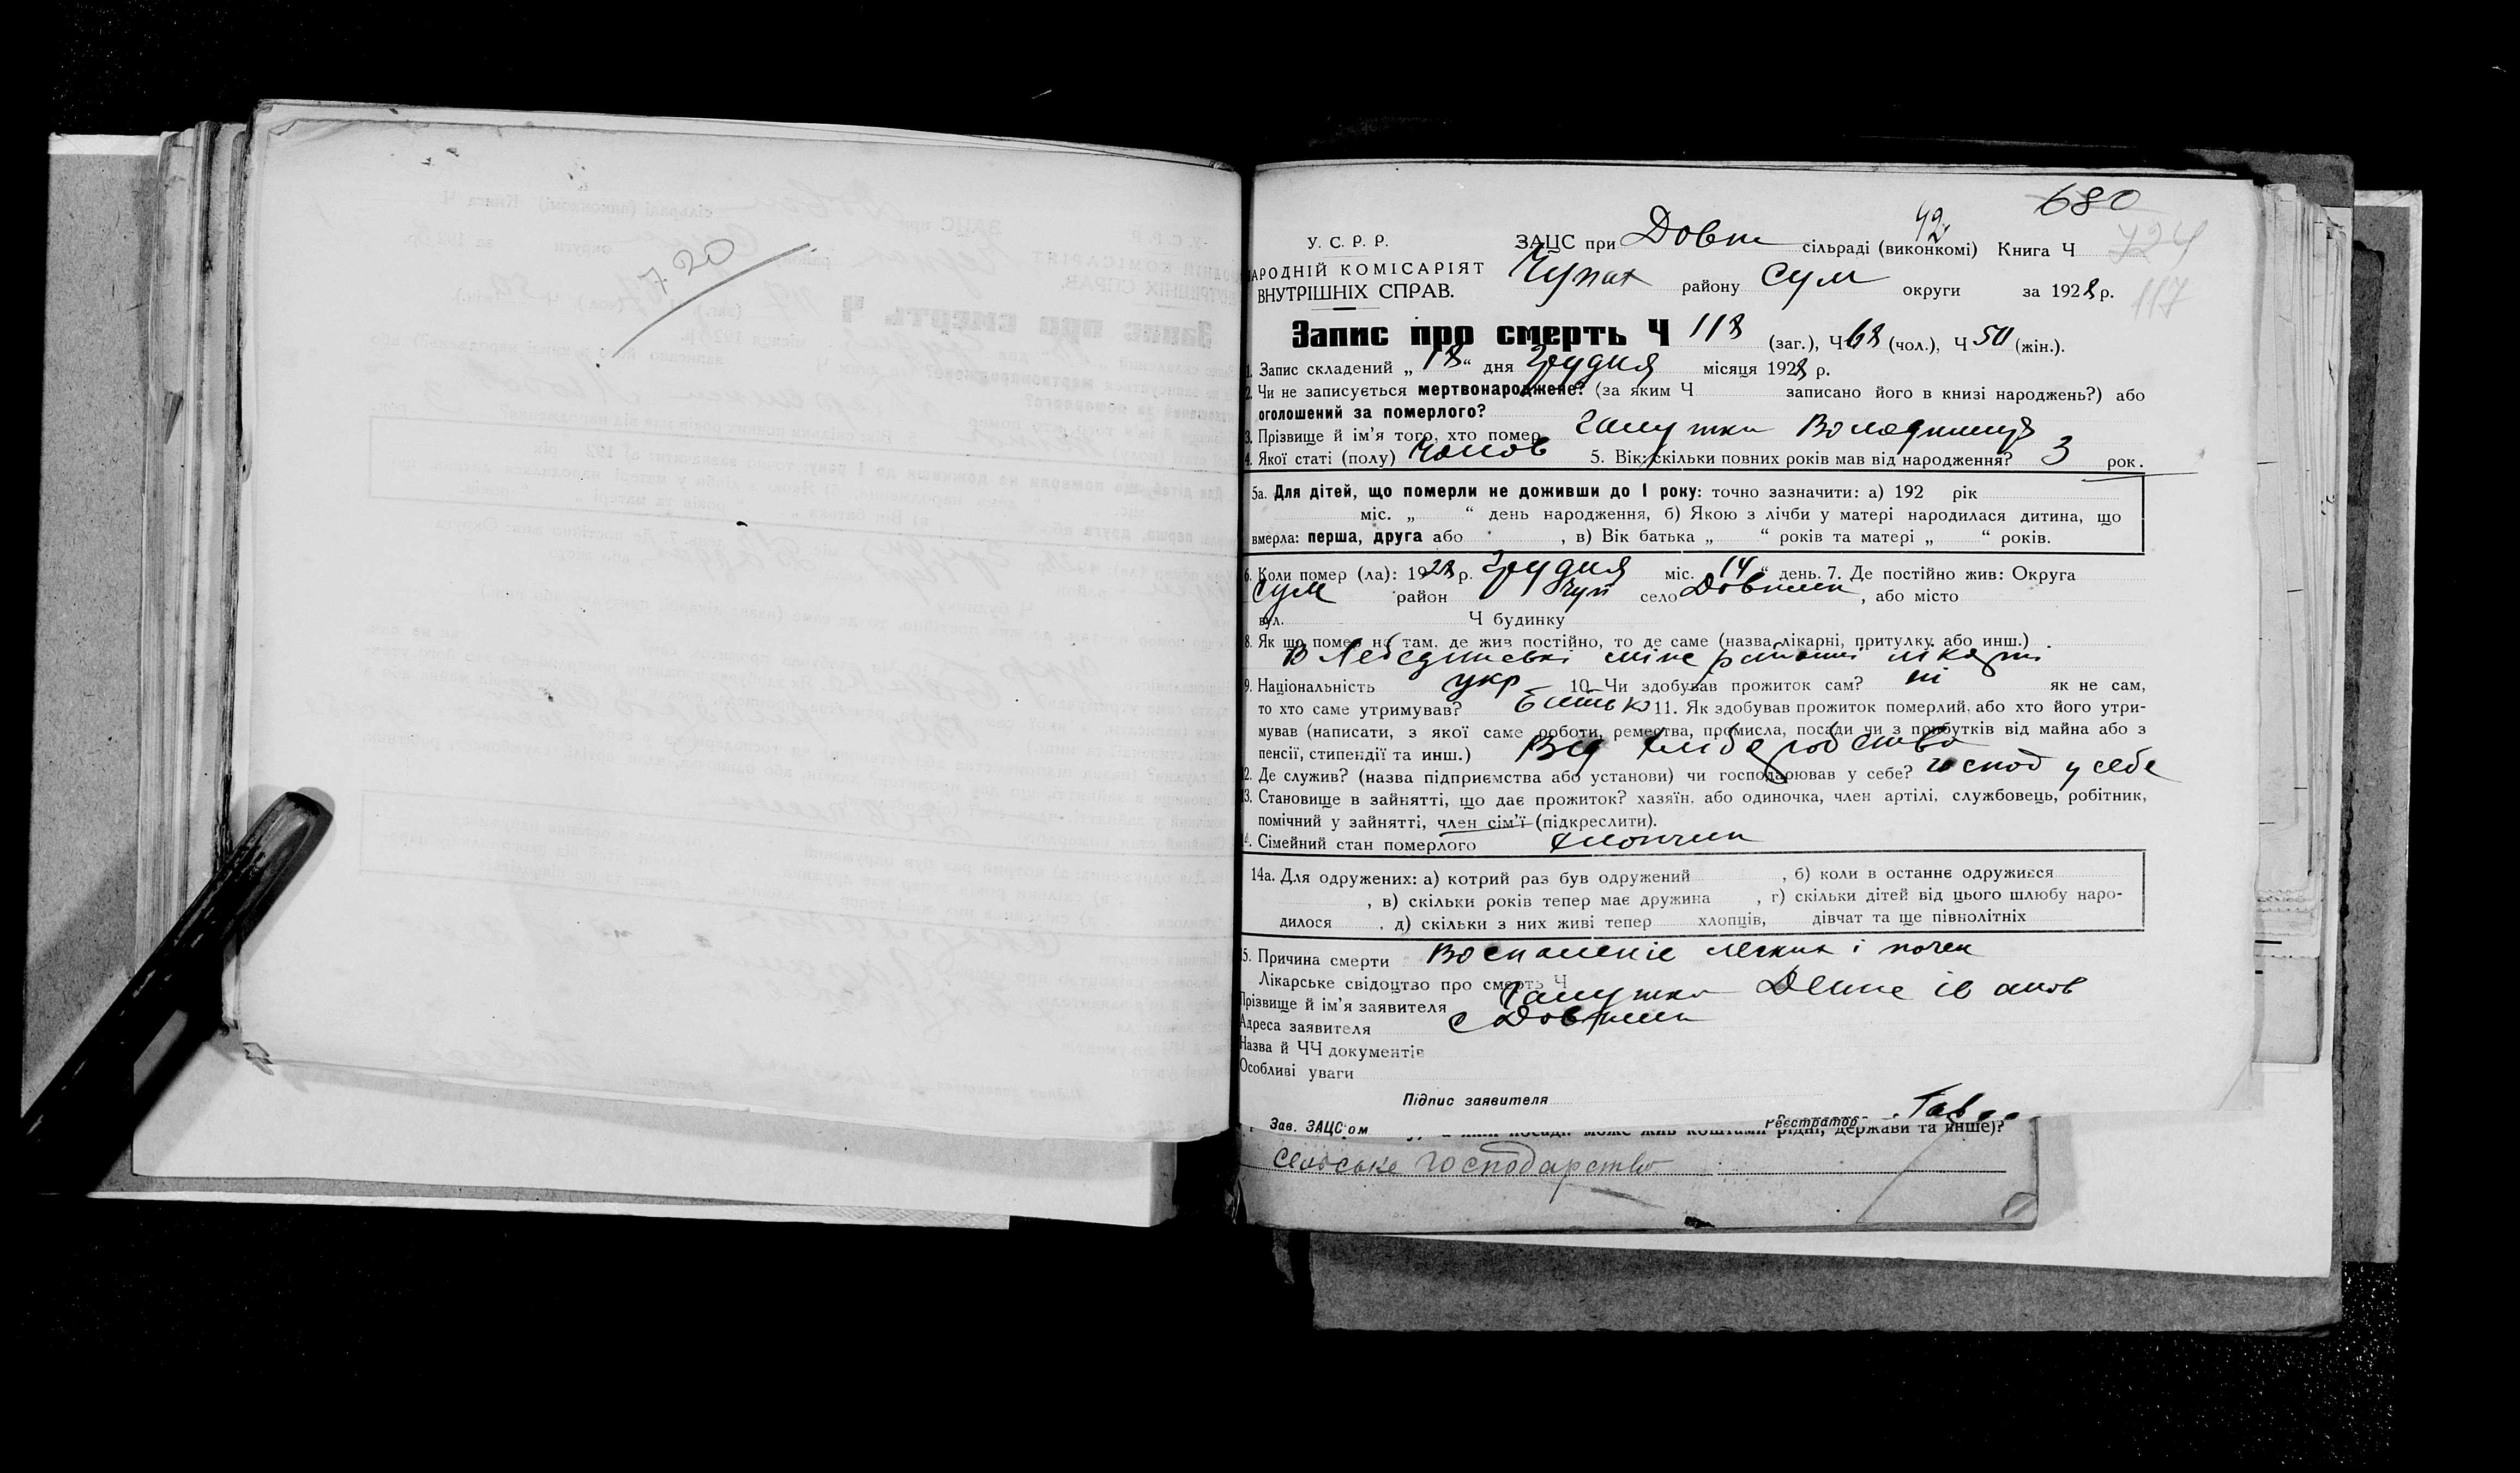 720
680
42
724
117
У. С. Р. Р.
ЗАЦС при Довж сільраді (виконкомі) Книга Ч
НАРОДНІЙ КОМІСАРІЯТ
ВНУТРІШНІХ СПРАВ.
Чупах району Сум округи за 1928 р.
Запис про смерть Ч 118 (заг.), Ч 68 (чол.), Ч 50 (жін.).
1. Запис складений „ 18 “ дня Грудня місяця 1928 р.
2. Чи не записується мертвонароджене? (за яким Ч записано його в книзі народжень?) або
оголошений за померлого?
3. Прізвище й ім’я того, хто помер Галушка Володимир
4. Якої статі (полу) Чолов 5. Вік: скільки повних років мав від народження? 3 рок.
5а. Для дітей, що померли не доживши до 1 року: точно зазначити: а) 192 рік
міс. „ “ день народження, б) Якою з лічби у матері народилася дитина, що
вмерла: перша, друга або , в) Вік батька „ “ років та матері „ “ років.
6. Коли помер (ла): 1928 р. Грудня міс. 14 “ день. 7. Де постійно жив: Округа
Сум район Чуп село Довжик , або місто
вул. Ч будинку
8. Як що помер не там, де жив постійно, то де саме (назва лікарні, притулку, або инш.) .
В Лебединські лікарні
9. Національність укр 10. Чи здобував прожиток сам? ні як не сам,
то хто саме утримував? батько 11. Як здобував прожиток померлий, або хто його утри-
мував (написати, з якої саме роботи, ремества, промисла, посади чи з прибутків від майна або з
пенсії, стипендії та инш.) Від хлібаробства
12. Де служив? (назва підприємства або установи) чи господарював у себе? господ у себе
13. Становище в зайнятті, що дає прожиток? хазяїн, або одиночка, член артілі, службовець, робітник,
помічний у зайнятті, член сім’ї (підкреслити).
14. Сімейний стан померлого хлопчик
14а. Для одружених: а) котрий раз був одружений , б) коли в останнє одружився
, в) скільки років тепер має дружина , г) скільки дітей від цього шлюбу наро-
дилося , д) скільки з них живі тепер хлопців, дівчат та ще півнолітніх
15. Причина смерти Воспаленіє легких і почек
Лікарське свідоцтво про смерть Ч
Прізвище й ім’я заявителя Галушка Денис іванов
Адреса заявителя с Довжик
Назва й ЧЧ документів
Особливі уваги
Підпис заявителя
Зав. ЗАЦС’ом Реєстратор
посаді може жив коштами рідні, держави та инше)?
сельське господарство